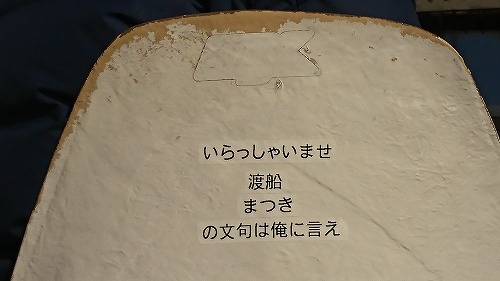 いらっしゃいませ
渡船
まつき
の文句は俺に言え